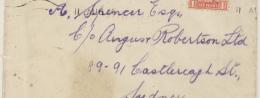 A. H. Spencer Esq.,
C/o Angus & Robertson Ltd
89-91 Castlereagh St.,
Sydney